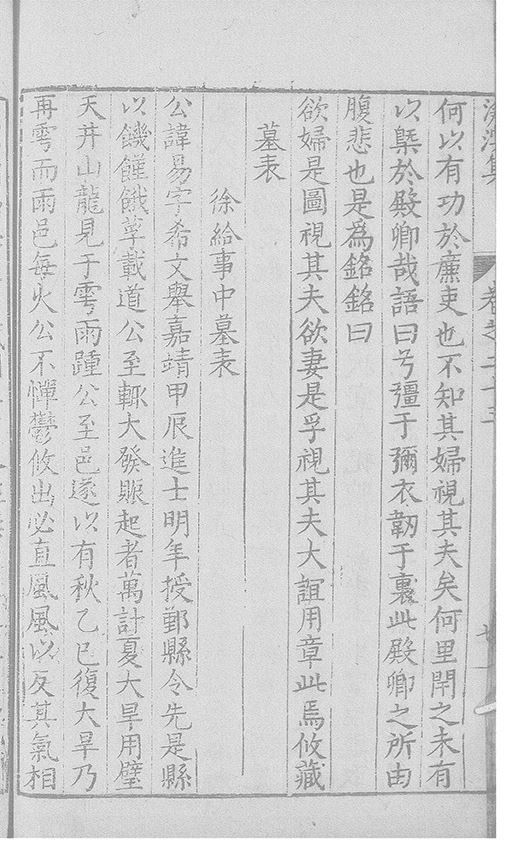 滄溟集 卷之二十三
何以有功於廉吏也不知其婦視其夫矣何里閈之未有
以槩於殿卿哉語曰弓彊于彌衣韌于裏此殿卿之所由
腹悲也是爲銘銘曰
欲婦是圖視其夫欲妻是孚視其夫大誼用章此焉攸藏
墓表
徐給事中墓表
公諱易字希文舉嘉靖甲辰進士明年授鄞縣令先是縣
以饑饉餓莩載道公至輙大發賑起者萬計夏大旱用璧
天井山龍見于雩雨踵公至邑遂以有秋乙巳復大旱乃
再雩而雨邑每火公不憚鬱攸出必直風風以反其氣相